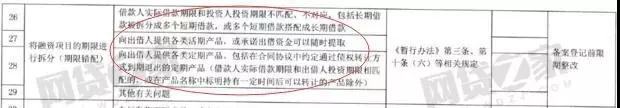 26
借款人实际借款期限和投资人投资期限不匹配、不对应，包括长期借
款被拆分成多个短期借款，或多个短期借款搭配成长期借款
27
向出借人提供各类活期产品，或承诺出借资金可以随时提取
将融资项目的期限进
行拆分（期限错配）
28
向出借人提供各类定期产品，包括在合同协议中约定通过债权转让方
式到期退出的定期产品（借款人实际借款期限和出借人投资期限相匹
配的，或在产品名称中标明持有一定时间后可以转让的产品除外）
29
其他有关问题
《暂行办法》第三条、第
十条（六）等相关规定
备案登记前限
期整改
网贷之家
网贷之家